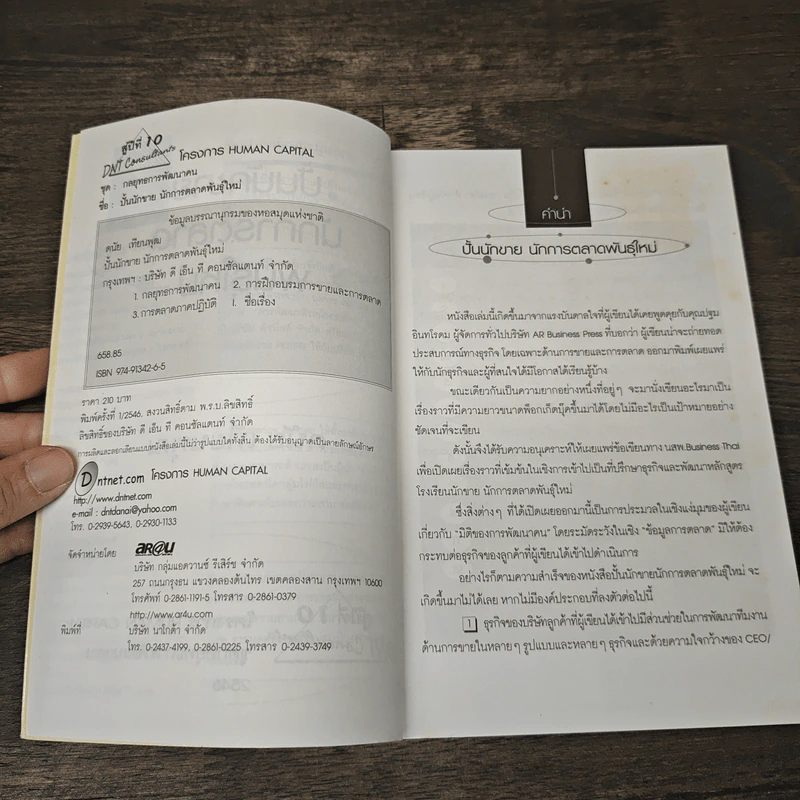 สู่ปีที่ 10
DNT Consultants
โครงการ HUMAN CAPITAL
ชุด : กลยุทธการพัฒนาคน
ชื่อ : ปั้นนักขาย นักการตลาดพันธุ์ใหม่
ข้อมูลบรรณานุกรมของหอสมุดแห่งชาติ
ดนัย เทียนพุฒ
ปั้นนักขาย นักการตลาดพันธุ์ใหม่
กรุงเทพฯ : บริษัท ดี เอ็น ที คอนซัลแตนท์ จำกัด
1. กลยุทธการพัฒนาคน 2. การฝึกอบรมการขายและการตลาด
3. การตลาดภาคปฏิบัติ I. ชื่อเรื่อง
658.85
ISBN 974-91342-6-5
ราคา 210 บาท
พิมพ์ครั้งที่ 1/2546, สงวนสิทธิ์ตาม พ.ร.บ.ลิขสิทธิ์
ลิขสิทธิ์ของบริษัท ดี เอ็น ที คอนซัลแตนท์ จำกัด
การผลิตและลอกเลียนแบบหนังสือเล่มนี้ไม่ว่ารูปแบบใดทั้งสิ้น ต้องได้รับอนุญาตเป็นลายลักษณ์อักษร
Dntnet.com โครงการ HUMAN CAPITAL
http://www.dntnet.com
e-mail : dntdanai@yahoo.com
โทร. 0-2939-5643, 0-2930-1133
จัดจำหน่ายโดย ar@u
บริษัท กลุ่มแอดวานซ์ รีเสิร์ช จำกัด
257 ถนนกรุงธน แขวงคลองต้นไทร เขตคลองสาน กรุงเทพฯ 10600
โทรศัพท์ 0-2861-1191-5 โทรสาร 0-2861-0379
http://www.ar4u.com
พิมพ์ที่ บริษัท นาโกต้า จำกัด
โทร. 0-2437-4199, 0-2861-0225 โทรสาร 0-2439-3749
คำนำ
ปั้นนักขาย นักการตลาดพันธุ์ใหม่
หนังสือเล่มนี้เกิดขึ้นมาจากแรงบันดาลใจที่ผู้เขียนได้เคยพูดคุยกับคุณปฐม
อินทโรดม ผู้จัดการทั่วไปบริษัท AR Business Press ที่บอกว่า ผู้เขียนน่าจะถ่ายทอด
ประสบการณ์ทางธุรกิจ โดยเฉพาะด้านการขายและการตลาด ออกมาพิมพ์เผยแพร่
ให้กับนักธุรกิจและผู้ที่สนใจได้มีโอกาสได้เรียนรู้บ้าง
ขณะเดียวกันเป็นความยากอย่างหนึ่งที่อยู่ๆ จะมานั่งเขียนอะไรมาเป็น
เรื่องราวที่มีความยาวขนาดพ็อกเก็ตบุ๊คขึ้นมาได้โดยไม่มีอะไรเป็นเป้าหมายอย่าง
ชัดเจนที่จะเขียน
ดังนั้นจึงได้รับความอนุเคราะห์ให้เผยแพร่ข้อเขียนทาง นสพ.Business Thai
เพื่อเปิดเผยเรื่องราวที่เข้มข้นในเชิงการเข้าไปเป็นที่ปรึกษาธุรกิจและพัฒนาหลักสูตร
โรงเรียนนักขาย นักการตลาดพันธุ์ใหม่
ซึ่งสิ่งต่างๆ ที่ได้เปิดเผยออกมานี้เป็นการประมวลในเชิงแง่มุมของผู้เขียน
เกี่ยวกับ "มิติของการพัฒนาคน" โดยระมัดระวังในเชิง "ข้อมูลการตลาด" มิให้ต้อง
กระทบต่อธุรกิจของลูกค้าที่ผู้เขียนได้เข้าไปดำเนินการ
อย่างไรก็ตามความสำเร็จของหนังสือปั้นนักขายนักการตลาดพันธุ์ใหม่ จะ
เกิดขึ้นมาไม่ได้เลย หากไม่มีองค์ประกอบที่ลงตัวต่อไปนี้
1 ธุรกิจของบริษัทลูกค้าที่ผู้เขียนได้เข้าไปมีส่วนช่วยในการพัฒนาทีมงาน
ด้านการขายในหลายๆ รูปแบบและหลายๆ ธุรกิจและด้วยความใจกว้างของ CEO/